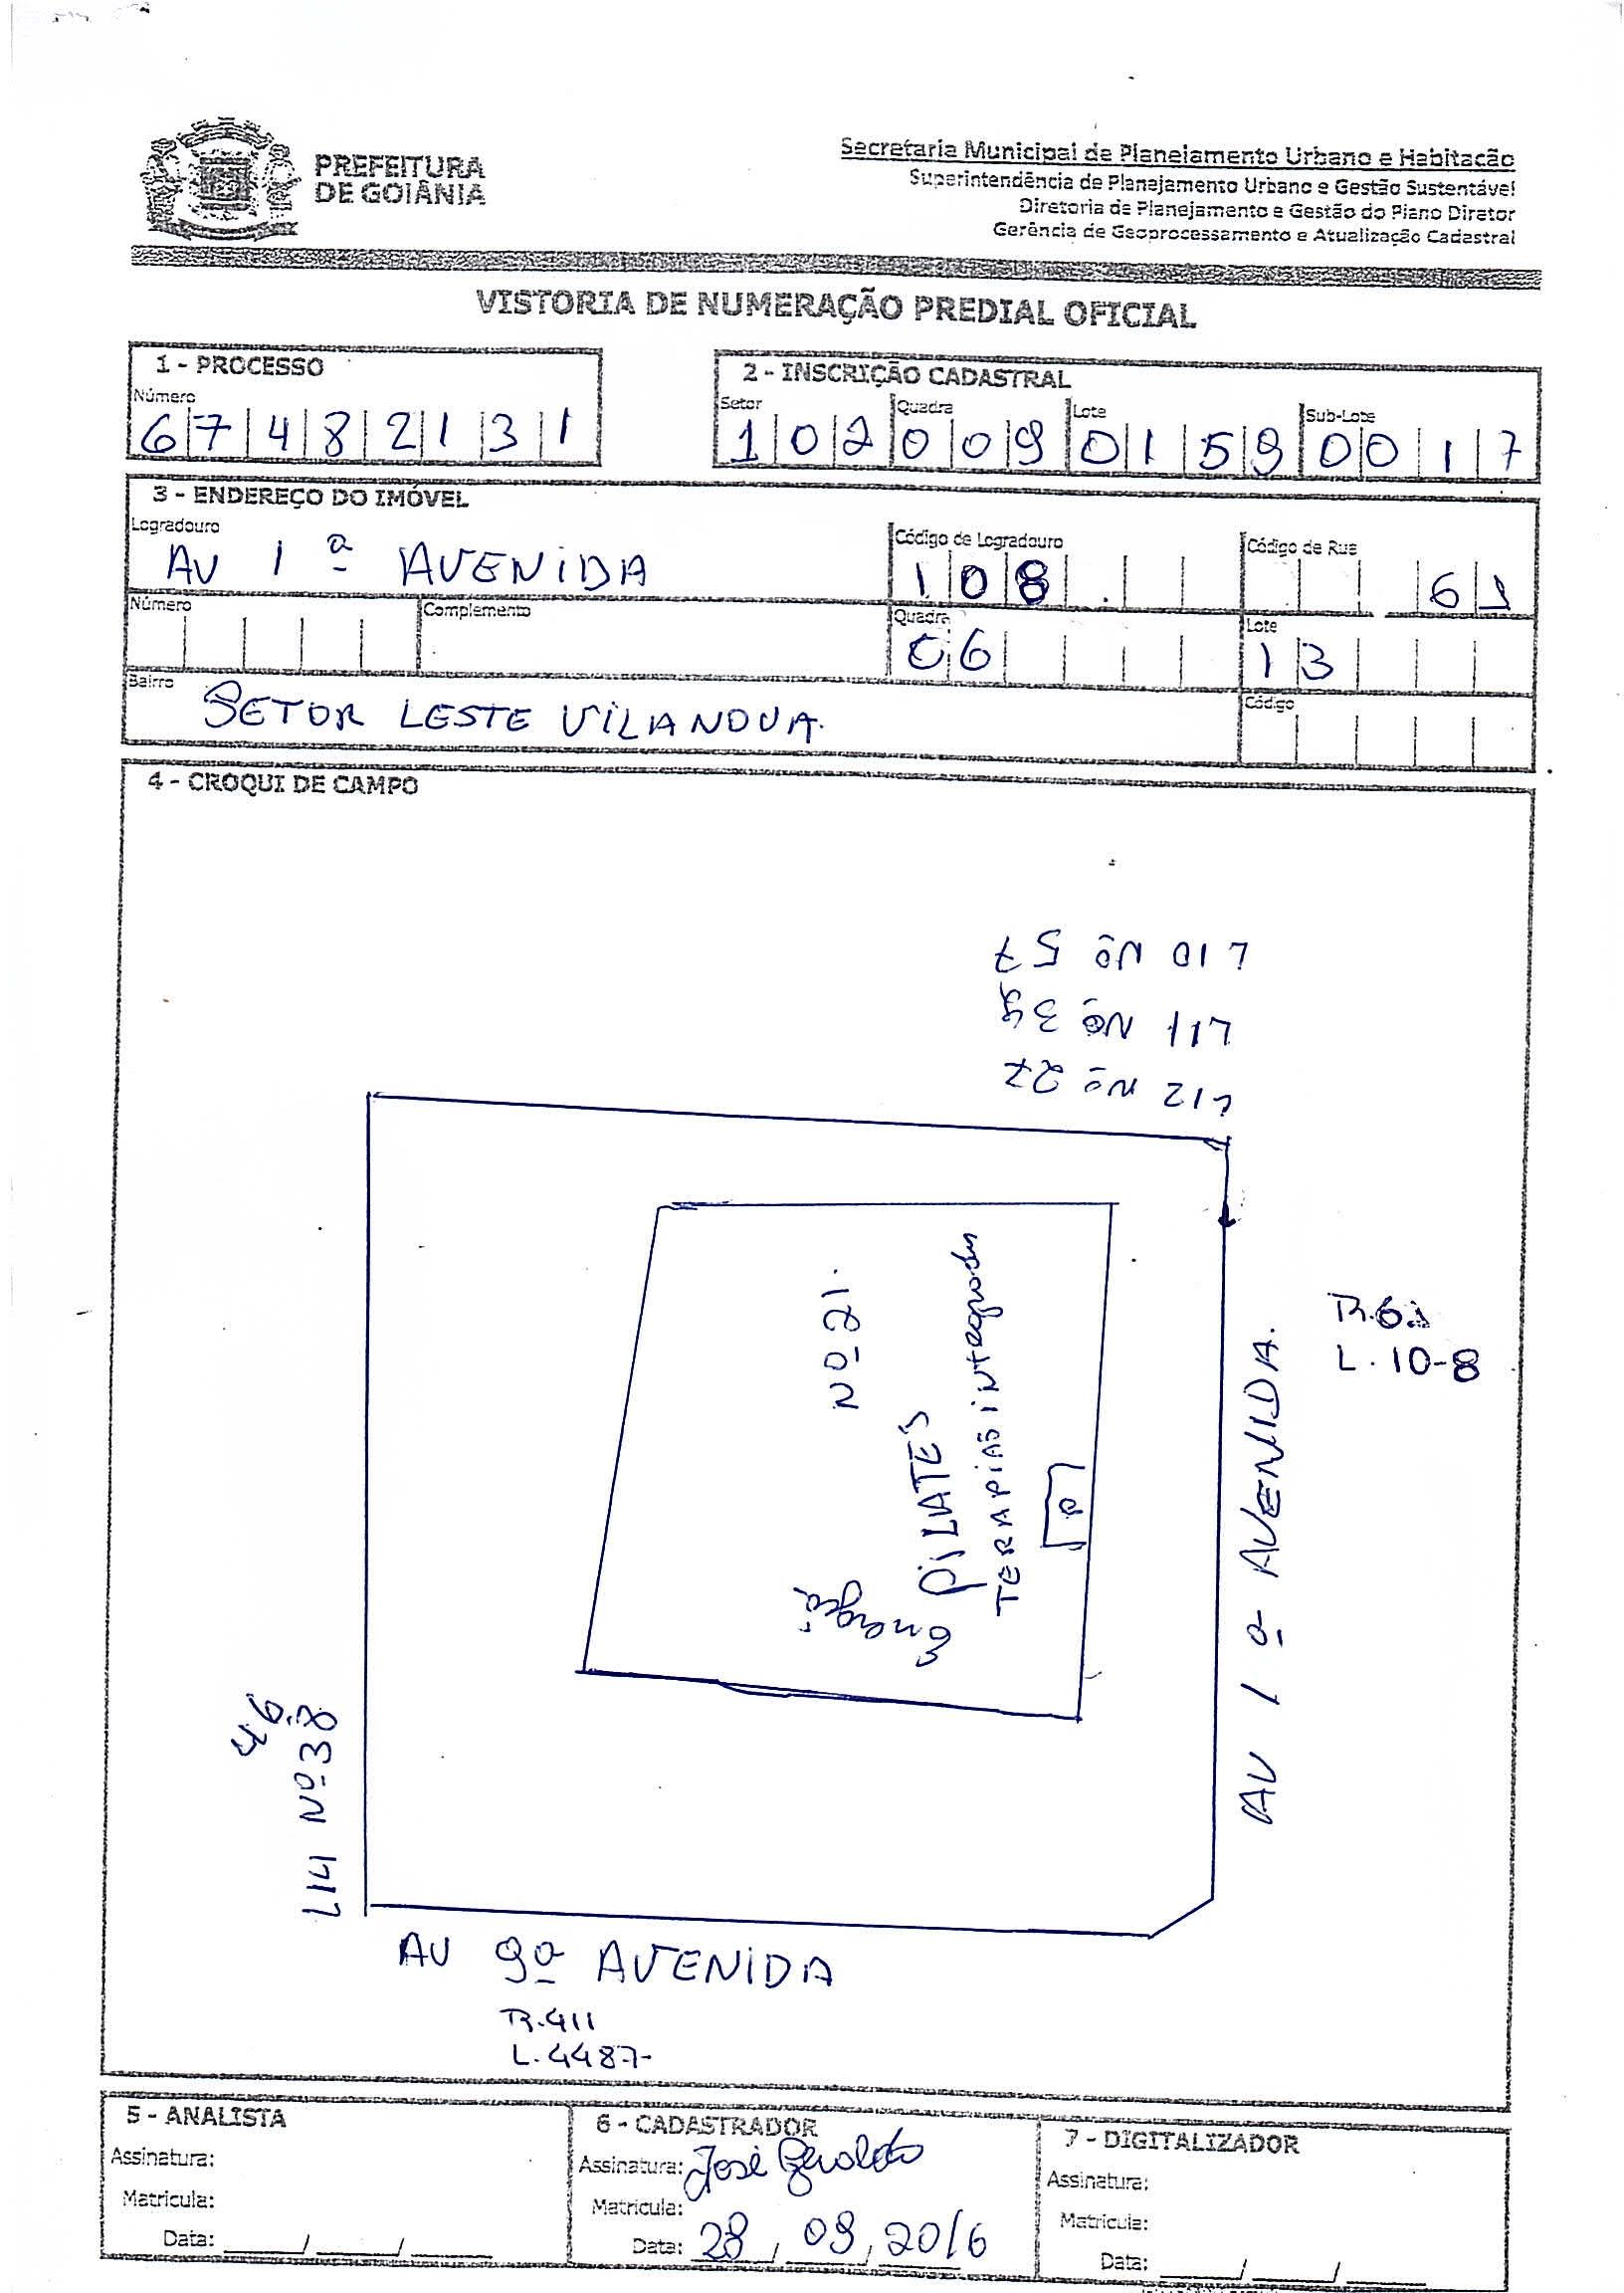 PREFEITURA
DE GOIÂNIA
Secretaria Municipal de Planejamento Urbano e Habitação
Superintendência de Planejamento Urbano e Gestão Sustentável
Diretoria de Planejamento e Gestão do Plano Diretor
Gerência de Geoprocessamento e Atualização Cadastral
VISTORIA DE NUMERAÇÃO PREDIAL OFICIAL
1 - PROCESSO
Número
67482131
2 - INSCRIÇÃO CADASTRAL
Setor Quadra Lote Sub-Lote
102 009 0159 0017
3 - ENDEREÇO DO IMÓVEL
Logradouro Código de Logradouro Código de Rua
AV 1ª AVENIDA 108 61
Número Complemento Quadra Lote
06 13
Bairro Código
SETOR LESTE VILA NOVA.
4 - CROQUI DE CAMPO
L10 Nº 57
L11 Nº 39
L12 Nº 27
Nº 21.
PILATES
TERAPIAS integradas
P
AV 1ª AVENIDA.
R.61
L. 10-8
46
L14 Nº 38
AV 9ª AVENIDA
R.411
L.4487-
5 - ANALISTA
Assinatura:
Matrícula:
Data: ____/____/____
6 - CADASTRADOR
Assinatura: José Geraldo
Matrícula:
Data: 28/09/2016
7 - DIGITALIZADOR
Assinatura:
Matrícula:
Data: ____/____/____